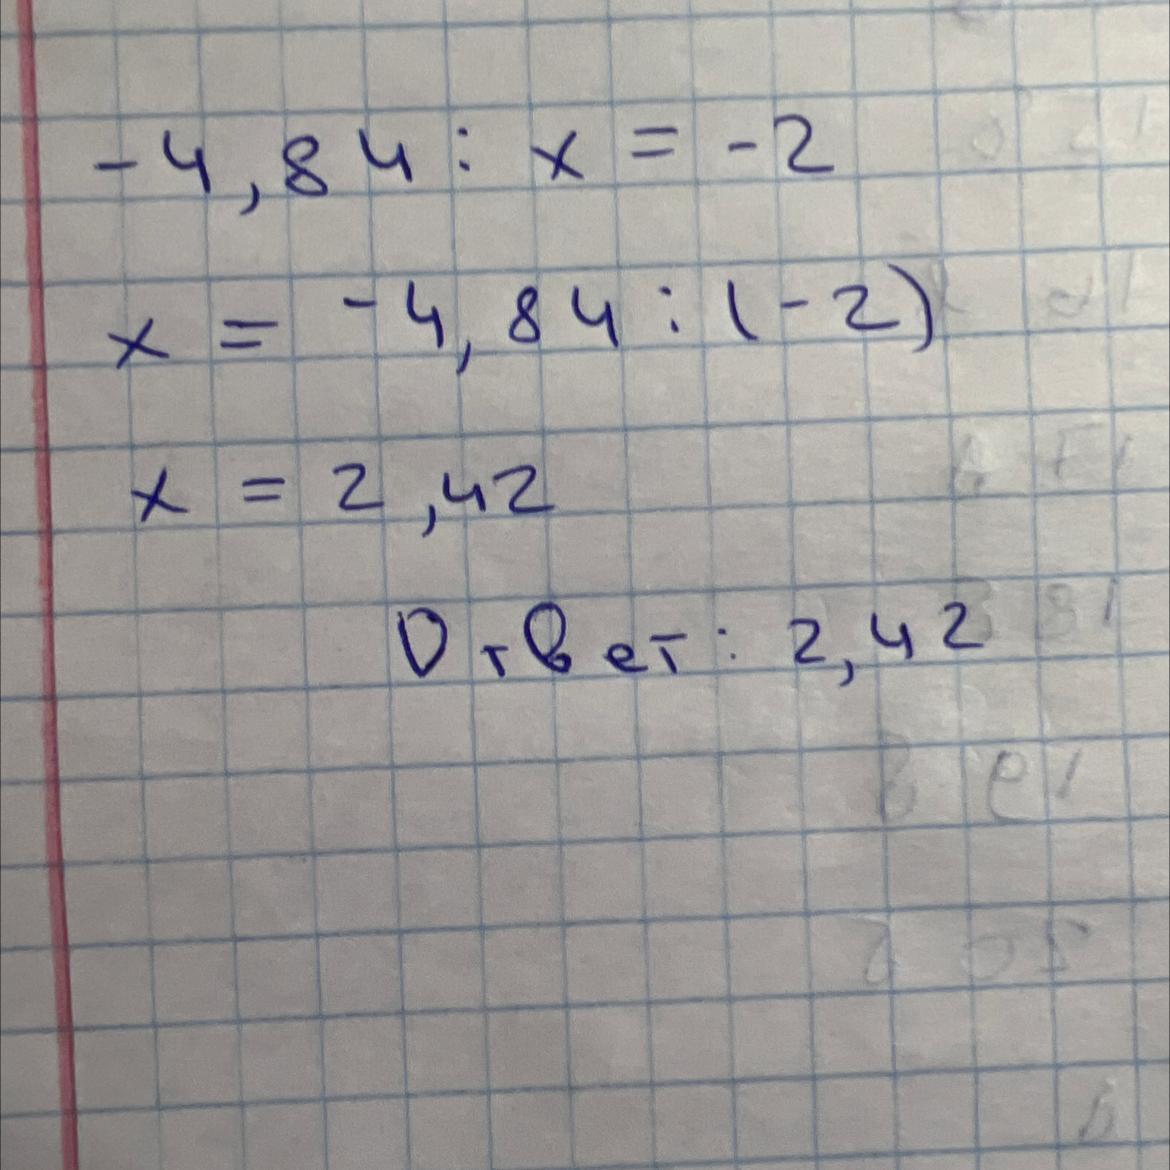 -4,84 : x = -2
x = -4,84 : (-2)
x = 2,42
Ответ: 2,42